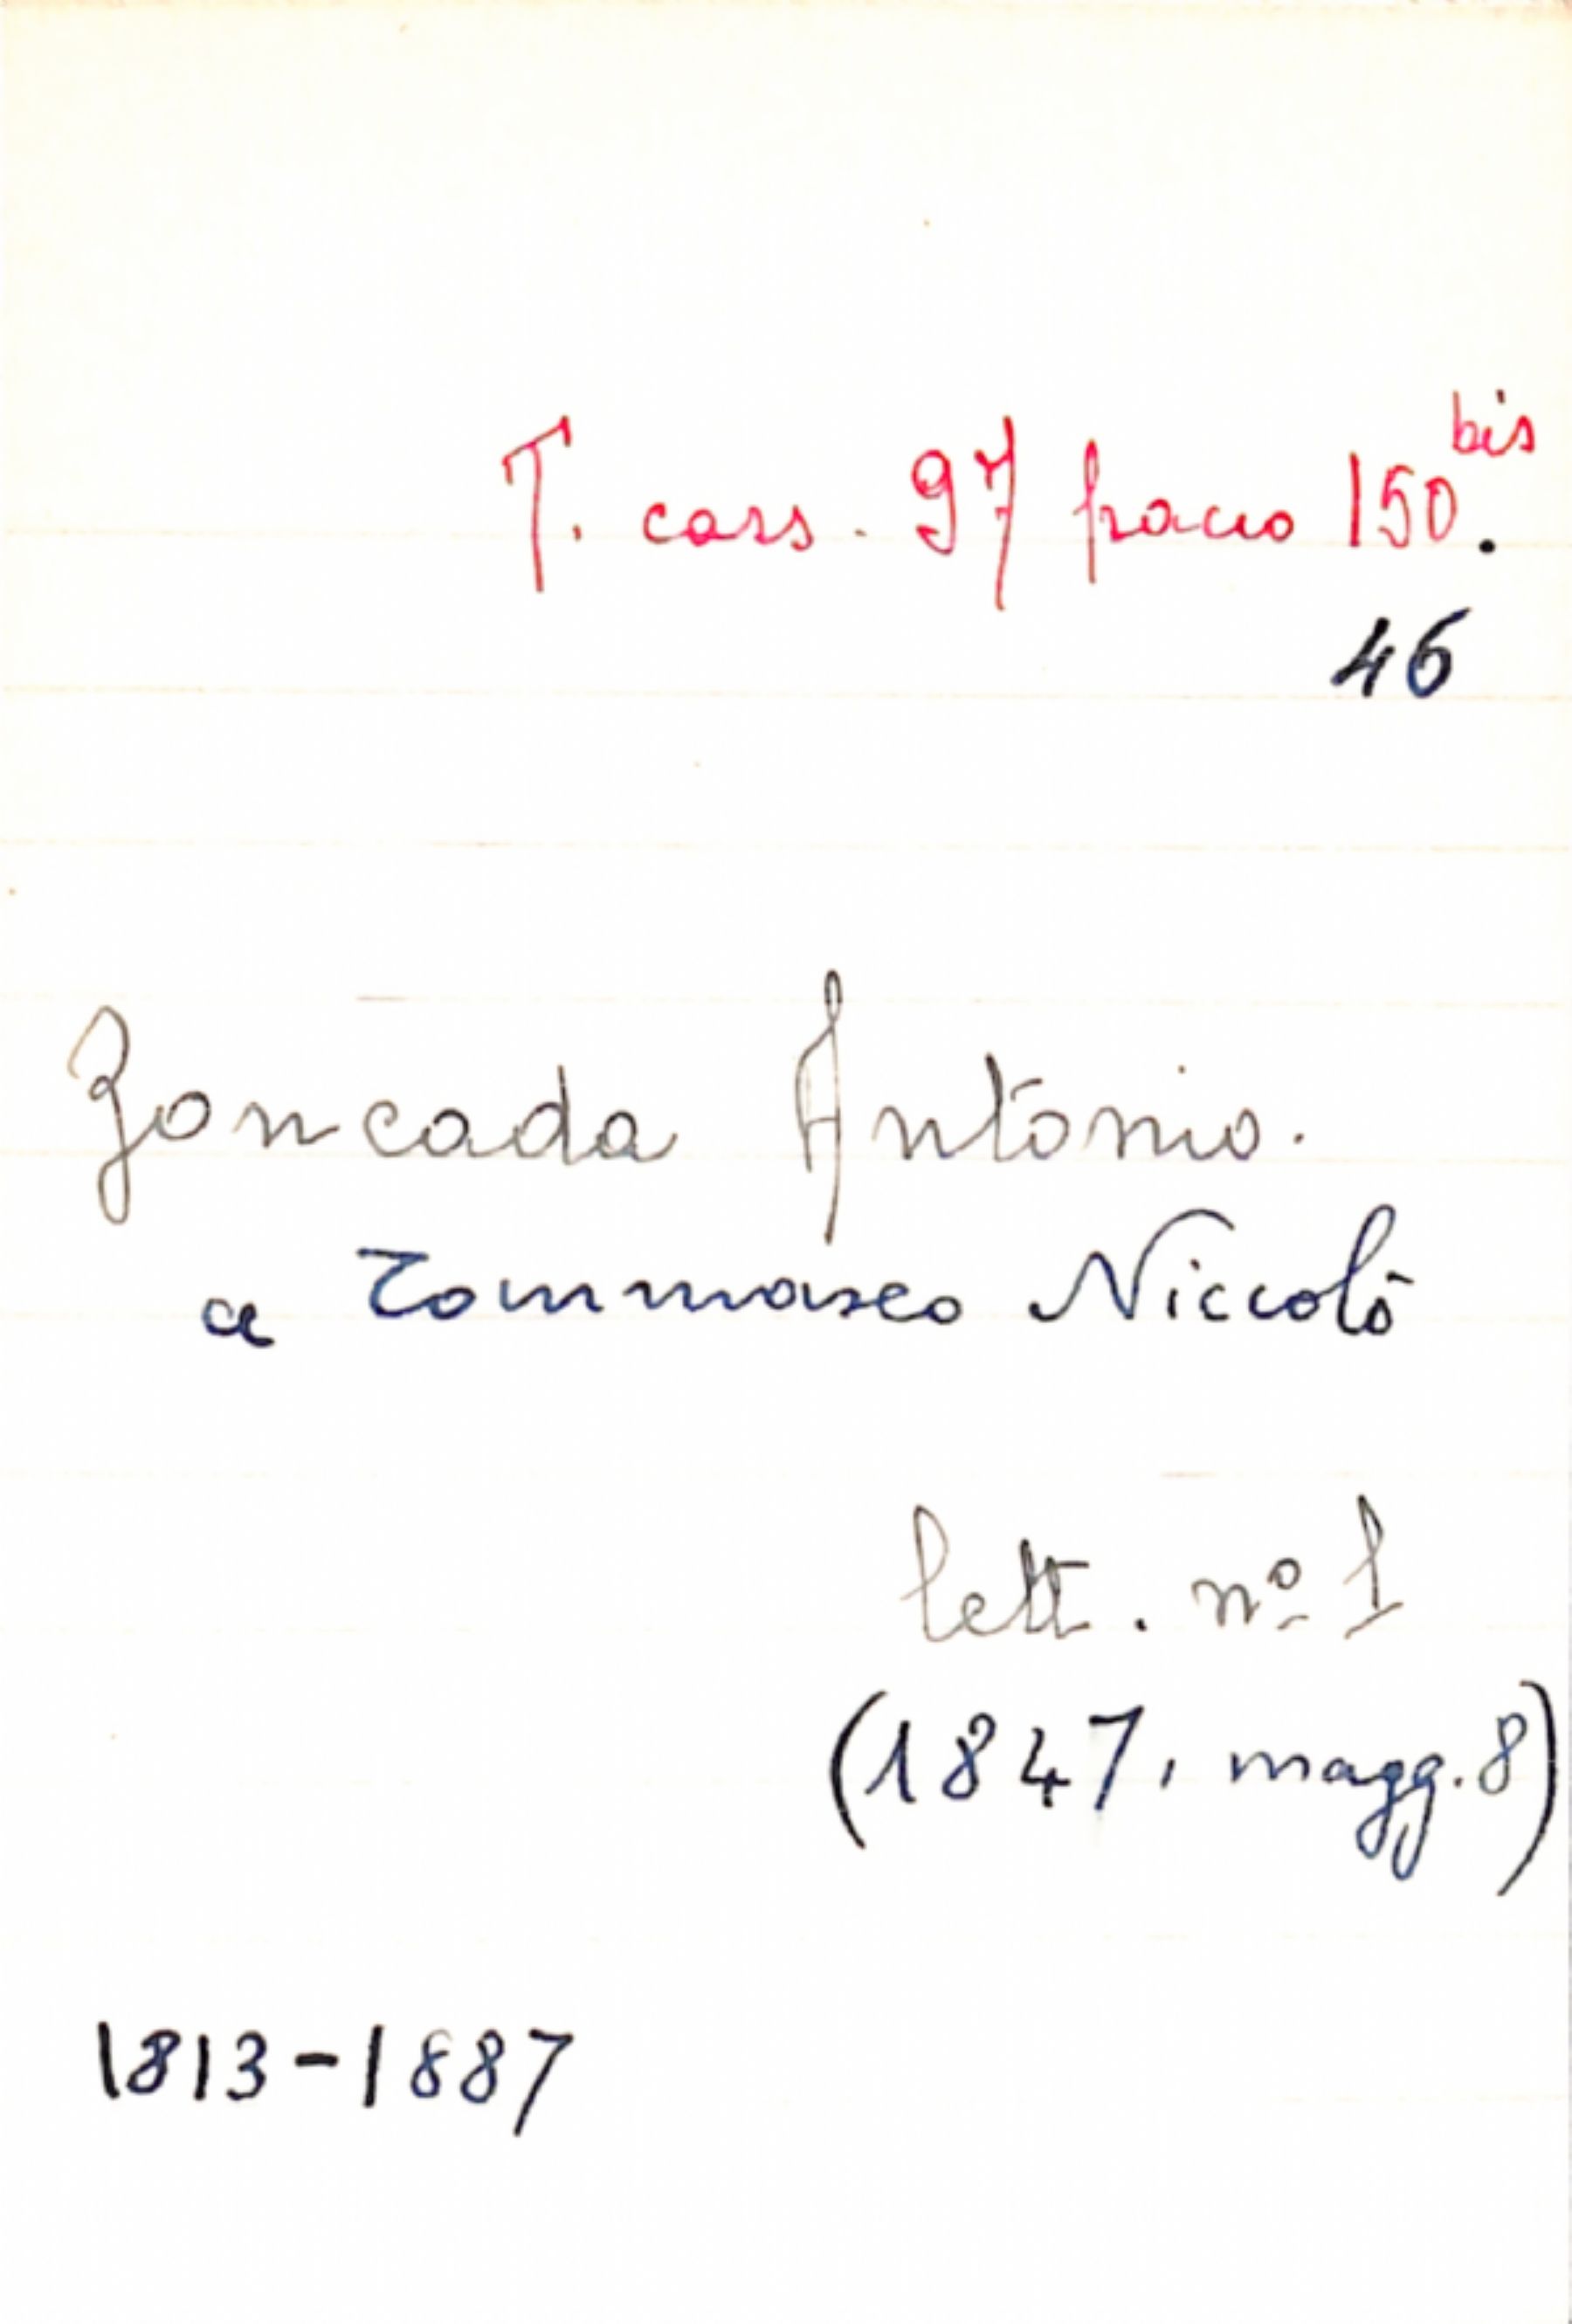 T. cass. 97 pacco 150 bis.
46
Zoncada Antonio.
a Tommaseo Niccolò
lett. nº 1
(1847, magg. 8)
1813-1887